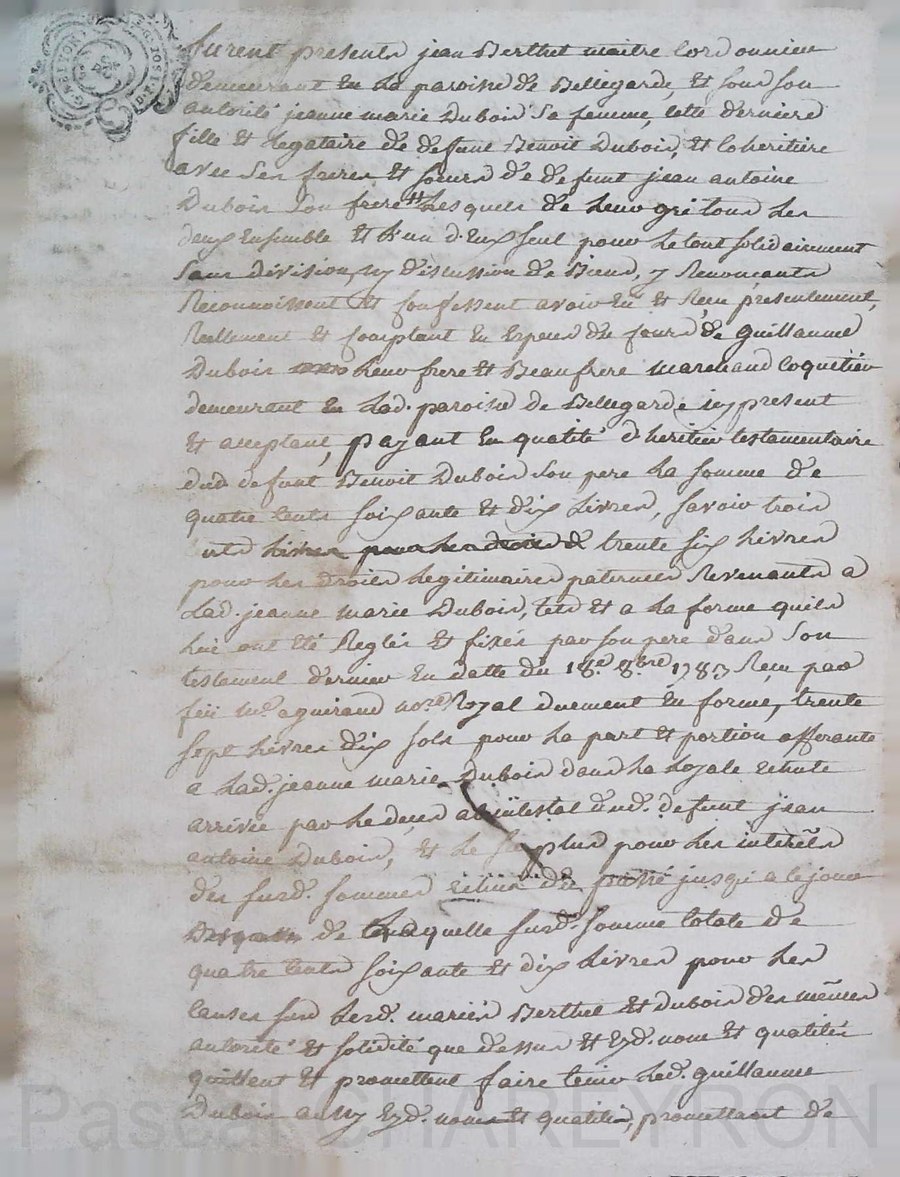 furent presents jean Berthet maitre Cordonnier
demeurant en la paroisse de Bellegarde, et sous son
autorité jeanne marie Dubois Sa femme, cette derniere
fille et legataire de defunt Benoit Dubois, et Coheritiere
avec Ses freres et soeurs de defunt jean antoine
Dubois Son frere Lesquels de leur gré tous les
deux Ensemble et L'un d'Eux seul pour le tout solidairement
Sans division, ny discussion de Biens, y Renonçants
Reconnoissent et confessent avoir Eu et Reçu presentement,
Reellement et comptant en Especes de cours de guillaume
Dubois leur frere et Beaufrere marchand Coquetier
demeurant en lad. paroisse de Bellegarde icy present
et acceptant, payant en qualité d'heritier testamentaire
dud. defunt Benoit Dubois Son pere la somme de
quatre Cents soixante et dix Livres, savoir trois
Cents trente six Livres
pour les droits Legitimaires paternels Revenants a
Lad. jeanne marie Dubois, tels et a la forme quils
lui ont été Reglés et fixés par son pere dans Son
testament dernier en datte du 18e. 8bre. 1783 Reçu par
feü me. aguiraud nore. Royal duement en forme, trente
sept Livres dix sols pour la part et portion afferante
a Lad. jeanne marie Dubois dans la Loyale Echute
arrivée par le deces abintestat dud. defunt jean
antoine Dubois, et le surplus pour les interêts
des susd. sommes du passé jusqu'a ce jour
de Laquelle susd. somme totale de
quatre Cents soixante et dix Livres pour les
Causes sus Lesd. mariés Berthet et Dubois des mêmes
autorité et solidité que dessus et Esd. noms et qualités
quittent et promettent faire tenir led. guillaume
Dubois Esd. noms et qualités, promettant de
Pascal CHAREYRON